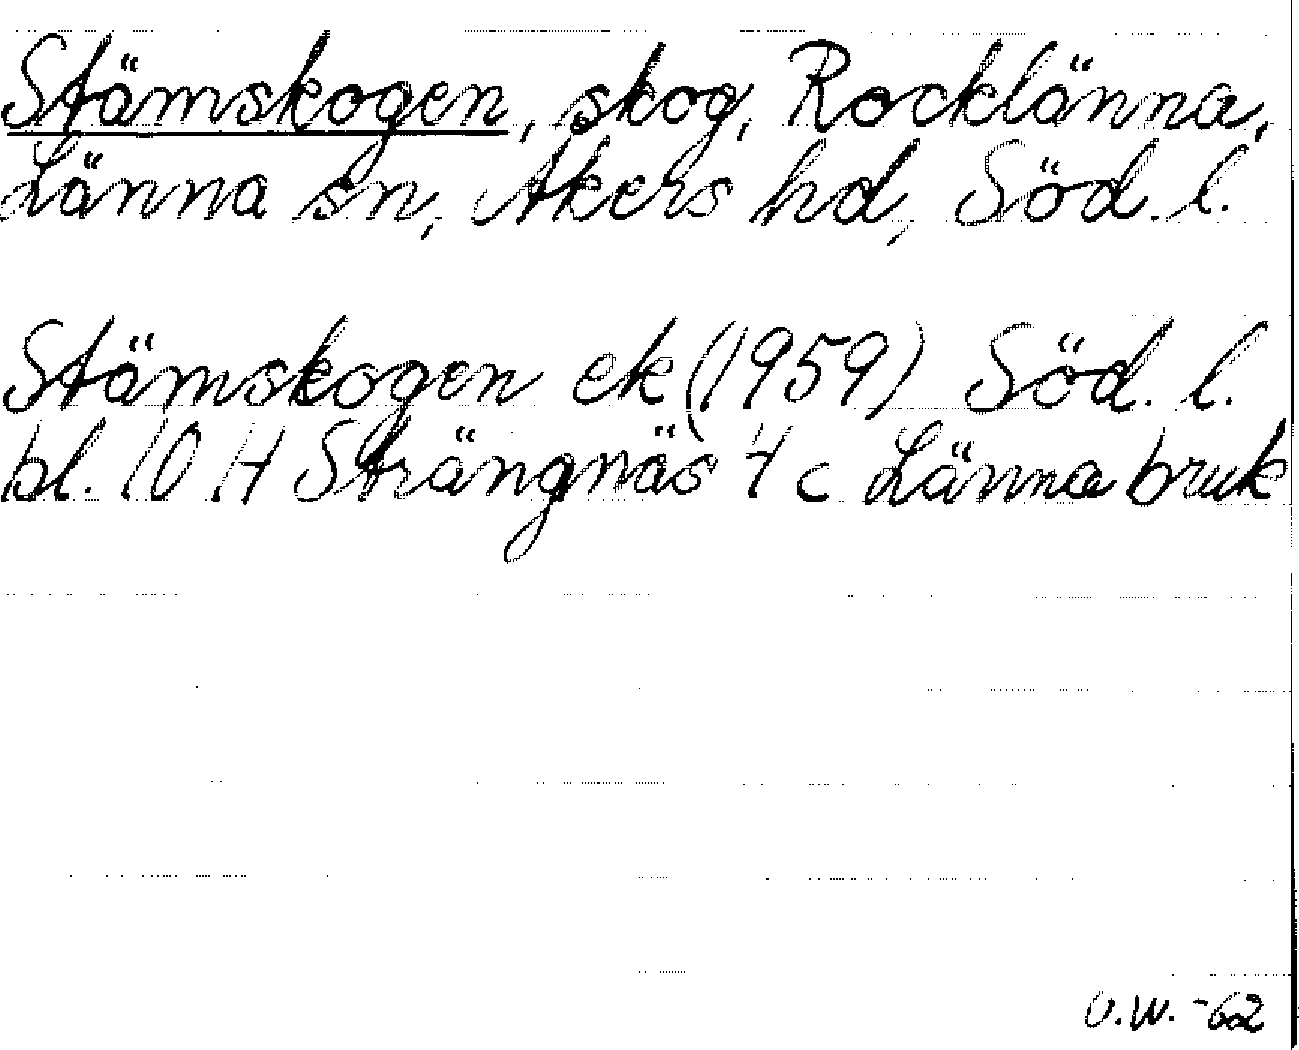 Stämskogen, skog, Rocklänna,
Länna sn, Åkers hd, Söd. l.
Stämskogen ek (1959) Söd. l.
bl. 10 H Strängnäs 4 c Länna bruk
U.W. -62